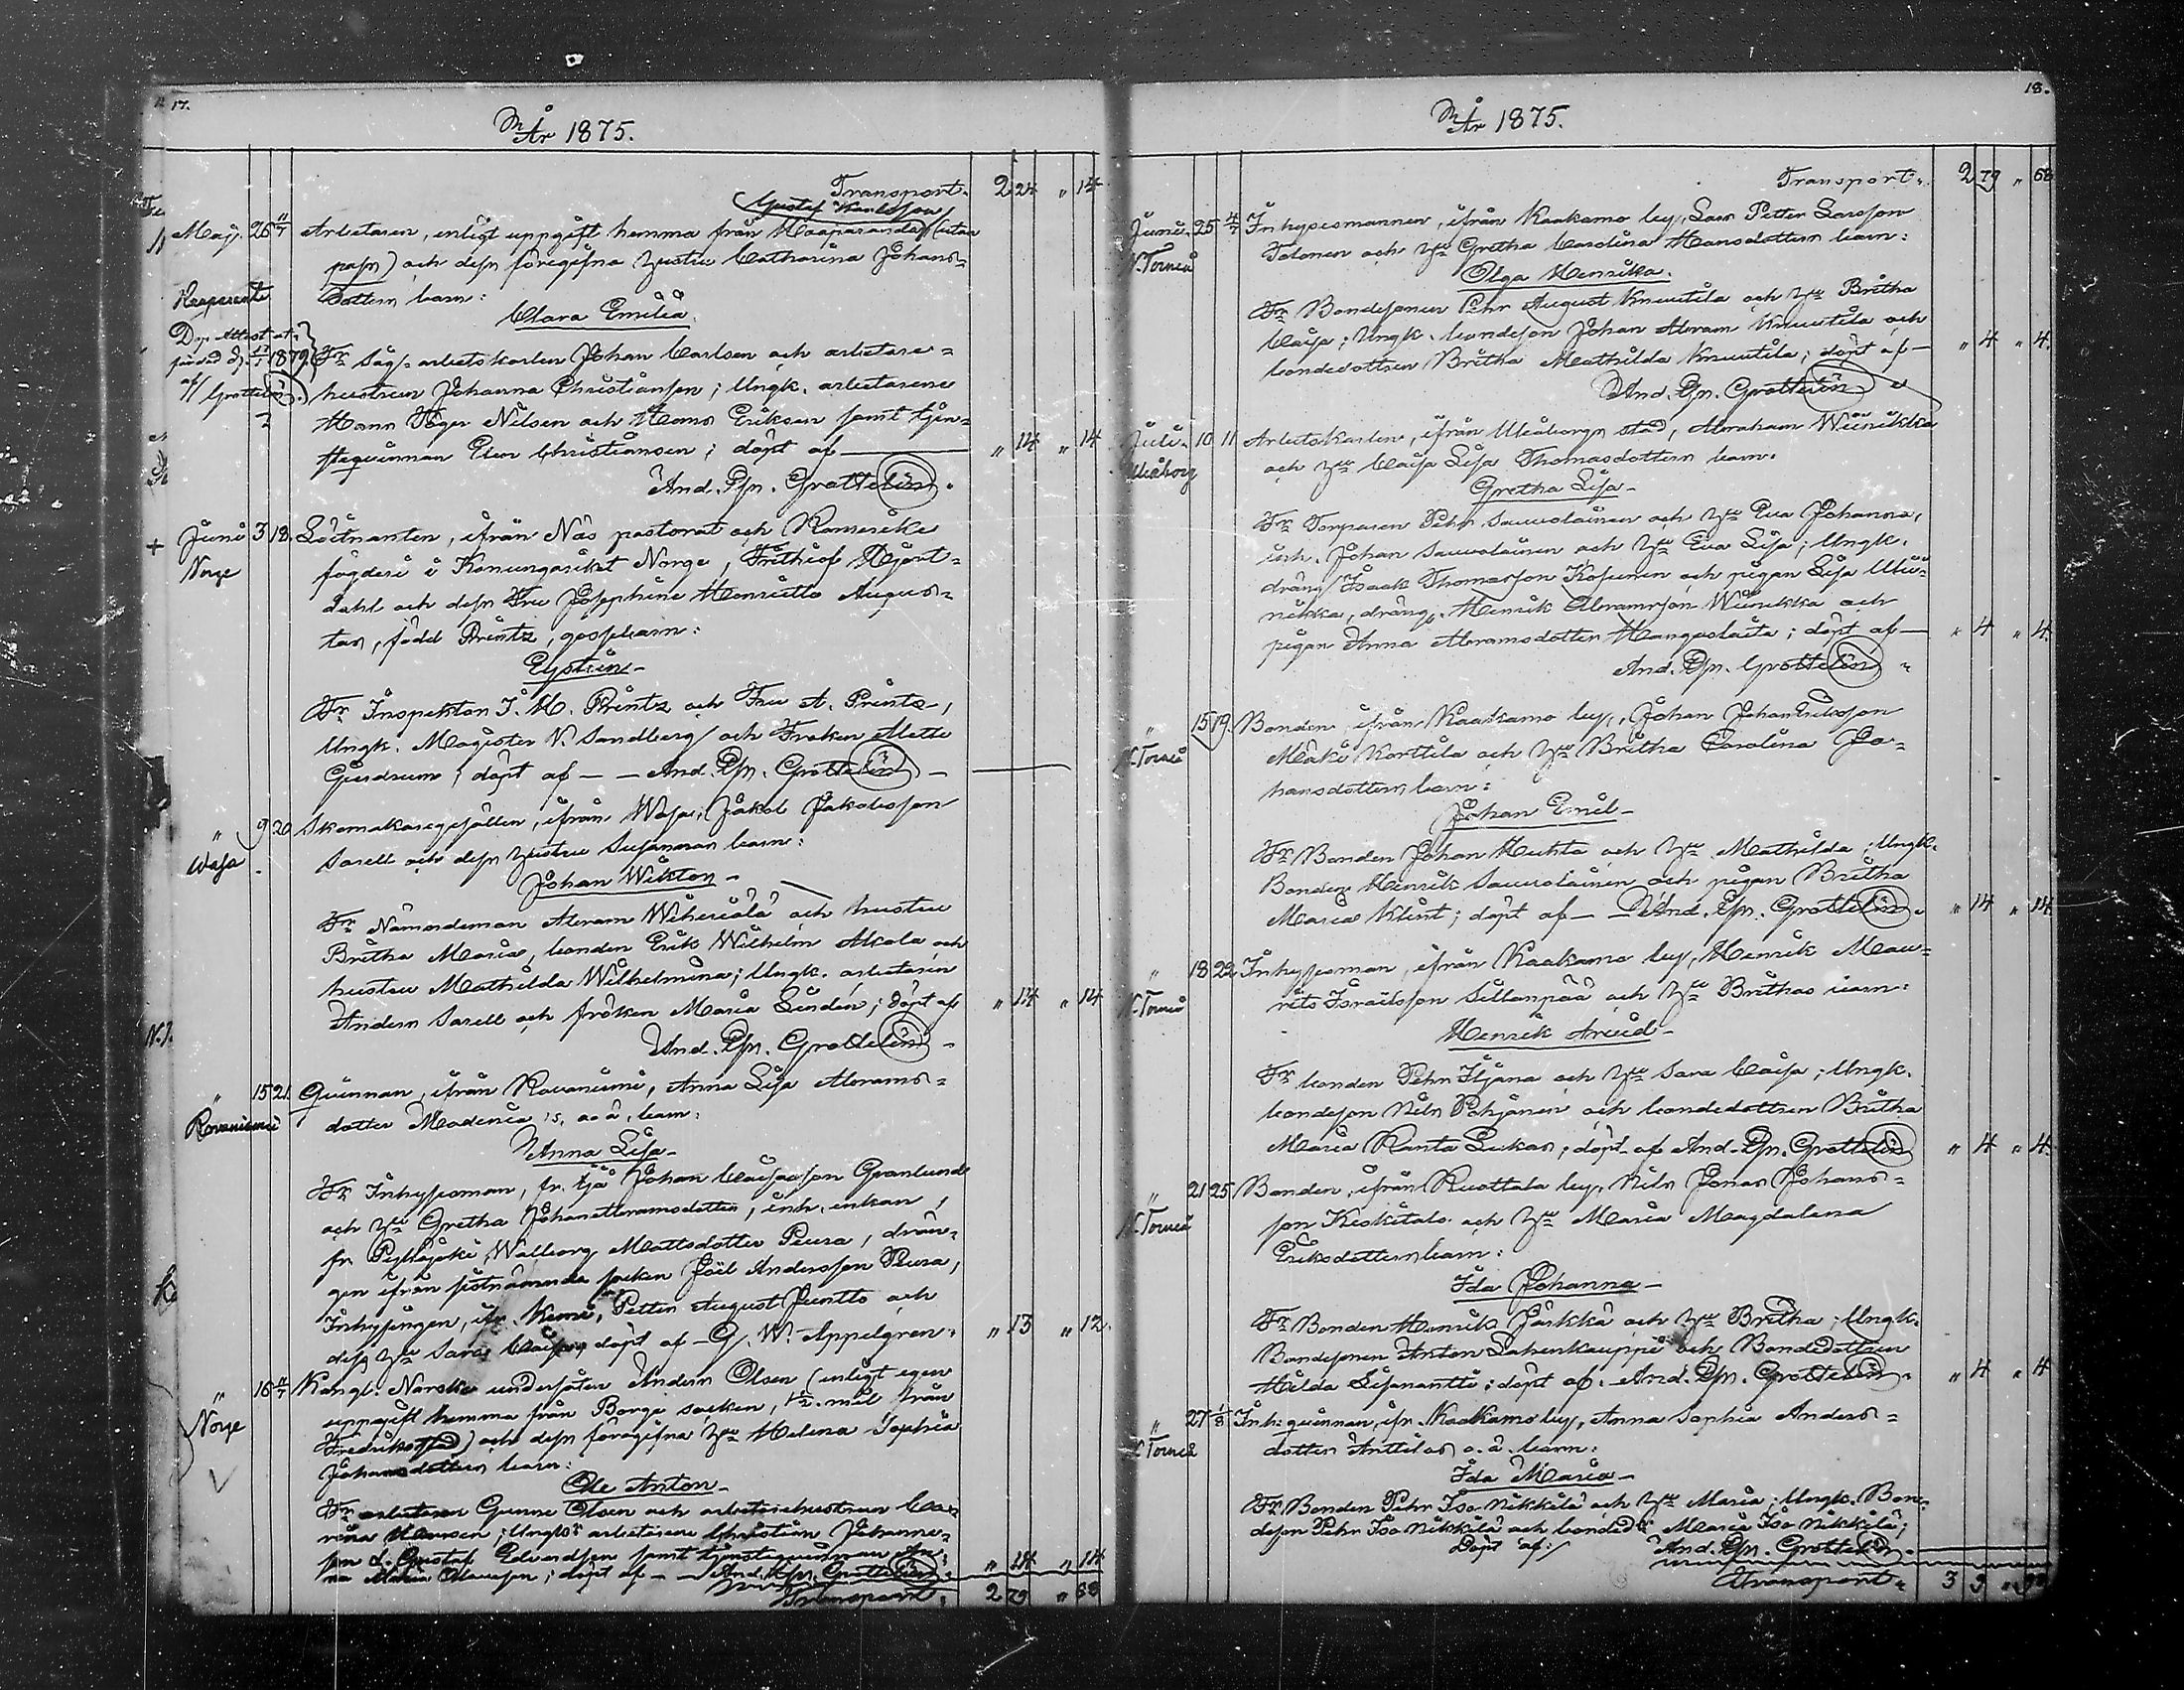 17.
År 1875.
Transport. 2 24 " 14
Gustaf Karlsson
Maj. 26 11/7 Arbetaren, enligt uppgift hemma från Haaparanda (utan
pass) och dess föregifna hustru Catharina Johans-
dotters barn:
Haaparanda
Clara Emilia.
Dop Attest ut-
färdad d. 1879.
af Grottelin.
Fr Sågs arbetskarlen Johan Carlsen och arbetare-
hustrun Johanna Christiansen; Ungk. arbetarene
Hans Nilsen och Hans Eriksen samt tjen-
steqvinnan Elen Christiansen; döpt af — " 14 " 14
And. Pgr. Grottelin.
Juni 3 18. Löitnanten, ifrån Näs pastorat och Romerike
Norge
fögderi i Konungariket Norge, Frithiof Hjort-
dahl och dess Fru Josephine Henriette Augus-
tas, född Printz, gossebarn:
Eystein -
Fr Inspektor I. H. Printz och Fru A. Printz,
Ungk. Magister V. Sandberg och Fröken Mette
Gudrum; döpt af — — And. Pgr. Grottelin —
" 9 20 Skomakaregesällen, ifrån Wasa, Jakob Jakobsson
Wasa
Sarell och dess hustru Susannas barn:
Johan Wiktor -
Fr Nämndeman Abram Wiheriälä och hustru
Britha Maria, bonden Erik Wilhelm Alkala och
hustru Mathilda Wilhelmina; Ungk. arbetaren
Anders Sarell och fröken Maria Lindén; döpt af " 14 " 14
And. Pgr. Grottelin -
" 15 21. Qvinnan, ifrån Rovaniemi, Anna Lisa Abrams-
Rovaniemi
dotter o.ä. barn:
Anna Lisa -
Fr Inhysesman, Johan Caisasson Granlund
och hru Gretha Johan Abramsdotter, inh. enkan,
fr. Pyhäjoki, Walborg Mattsdotter Peura, drän-
gen ifrån sistnämnda socken Joel Andersson Peura,
Inhysingen, ifr. Kemi, Petter August Juntto och
dess hru Sara Caisa; döpt af G. W. Appelgren. " 13 " 12.
" 16 11/7 Kongl. Norske undersåten Anders Olsen (enligt egen
Norge
uppgift hemma från Borge socken, 1/2 mil från
Fredrikstad) och dess föregifna hru Helena Sophia
Johansdotters barn:
Ole Anton -
Fr arbetaren Gunne Olsen och arbetarehustrun Ca-
rina Hansen; Ungk. arbetarene Christian Johanne-
sen & Gustaf Edvardsen samt tjensteqvinnan An-
na Maria Olausson; döpt af — And. Pgr. Grottelin. " 14 " 14
Transport. 2 79 " 68
18.
År 1875.
Transport. 2 79 " 68
Juni. 25 4/7 Inhysesmannen, ifrån Kaakamo by, Lars Petter Larsson
N. Torneå
Tolonen och hru Gretha Carolina Hansdotters barn:
Olga Henrika.
Fr Bondesonen Pehr August Knuutila och hru Britha
Caisa; Ungk. bondeson Johan Abram Knuutila och
bondedottren Britha Mathilda Knuutila; döpt af — " 4 " 4.
And. Pgr. Grottelin
Juli. 10 11 Arbetskarlen, ifrån Uleåborgs stad, Abraham Wiinikka
Uleåborg
och hru Caisa Lisa Thomasdotters barn:
Gretha Lisa -
Fr Torparen Pehr Sauvolainen och hru Eva Johanna,
inh. Johan Sauvolainen och hru Eva Lisa; Ungk.
dräng Isaak Thomasson Kosunen och pigan Lisa Wii-
nikka, dräng. Henrik Abramsson Wiinikka och
pigan Anna Abramsdotter Hangaslaita; döpt af — " 4 " 4.
And. Pgr. Grottelin
" 15 19. Bonden, ifrån Kaakamo by, Johan Johan Eriksson
N. Torneå
Mäki Korttila och hru Britha Carolina Jo-
hansdotters barn:
Johan Emil -
Fr Bonden Johan Huhta och hru Mathilda; Ungk.
Bonden Henrik Sauvolainen och pigan Britha
Maria Klint; döpt af — And. Pgr. Grottelin. " 14 " 14
" 18 22. Inhysesman, ifrån Kaakamo by, Henrik Mau-
N. Torneå
rits Israelsson Sillanpää och hru Brithas barn:
Henrik Arvid -
Fr bonden Pehr Iljana och hru Sara Caisa; Ungk.
bondeson Nils Pohjanen och bondedottren Britha
Maria Ranta Lukas; döpt af And. Pgr. Grottelin " 4 " 4.
" 21 25. Bonden, ifrån Ruottala by, Nils Jonas Johans-
N. Torneå
son Keskitalo och hru Maria Magdalena
Eriksdotters barn:
Ida Johanna -
Fr Bonden Henrik Jarkkä och hru Britha; Ungk.
Bondesonen Anton Lahenkauppi och Bondedottren
Hilda Lisanantti; döpt af. And. Pgr. Grottelin. " 4 " 4
" 27 1/8 Inh: qvinnan, ifr. Kaakamo by, Anna Sophia Anders-
N. Torneå
dotter Anttilas o.ä. barn:
Ida Maria -
Fr Bonden Pehr Iso Nikkilä och hru Maria; Ungk. Bon-
deson Pehr Iso Nikkilä och bonded:r Maria Iso Nikkilä;
Döpt af: And. Pgr. Grottelin.
Transport. 3 9